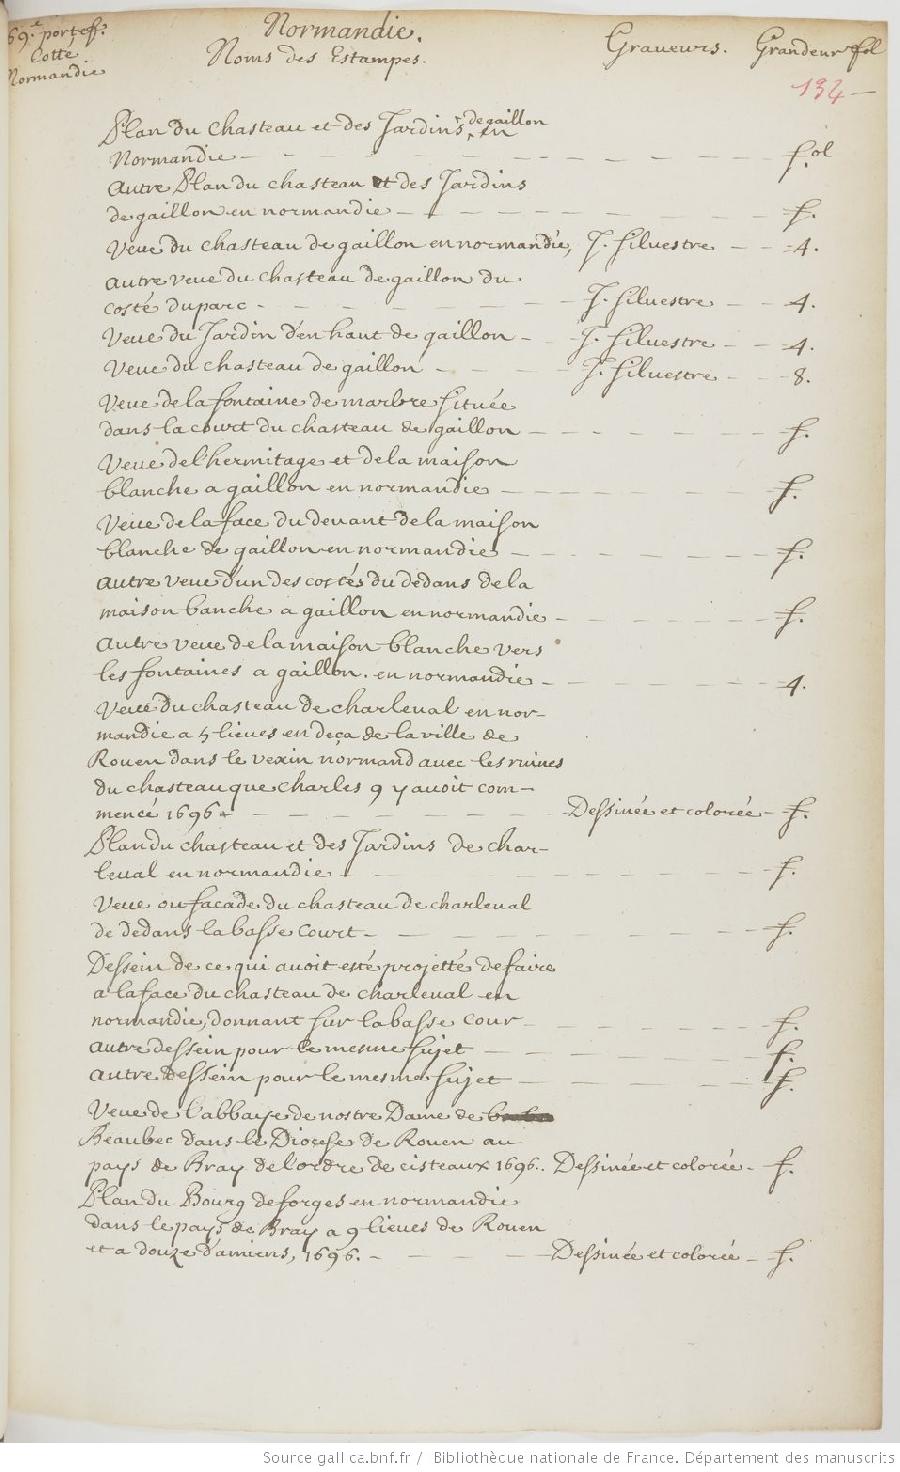 69.e portef. Normandie.
Cotté Noms des Estampes. Graveurs. Grandeur fol
Normandie
134 —
Plan du chasteau et des Jardins de gaillon en
Normandie — fol
autre Plan du chasteau et des Jardins
de gaillon en normandie — f.
Veue du chasteau de gaillon en normandie, J. Silvestre — 4.
autre veue du chasteau de gaillon du
costé du parc — J. Silvestre — 4.
Veue du Jardin d'en haut de gaillon — J. Silvestre — 4.
Veue du chasteau de gaillon — J. Silvestre — 8.
Veue de la fontaine de marbre située
dans la court du chasteau de gaillon — f.
Veue de l'hermitage et de la maison
blanche a gaillon en normandie — f.
Veue de la face du devant de la maison
blanche de gaillon en normandie — f.
autre veue d'un des costés du dedans de la
maison banche a gaillon en normandie — f.
autre veue de la maison blanche vers
les fontaines a gaillon. en normandie — 4.
Veue du chasteau de charleval en nor-
mandie a 5 lieues en deça de la ville de
Rouen dans le vexin normand avec les ruines
du chasteau que charles 9 y avoit com-
mencé 1696 — Dessinée et colorée — f.
Plan du chasteau et des Jardins de char-
leval en normandie — f.
Veue ou façade du chasteau de charleval
de dedans la basse court — f.
Dessein de ce qui avoit esté projetté de faire
a la face du chasteau de charleval en
normandie, donnant sur la basse cour — f.
autre dessein pour le mesme sujet — f.
autre dessein pour le mesme sujet — f.
Veue de l'abbaye de nostre Dame de
Beaubec dans le Diocese de Rouen au
pays de Bray de l'ordre de cisteaux 1696. Dessinée et colorée — f.
Plan du Bourg de forges en normandie
dans le pays de Bray a 9 lieues de Rouen
et a douze d'amiens, 1696. — Dessinée et colorée — f.
Source gallica.bnf.fr / Bibliothèque nationale de France. Département des manuscrits